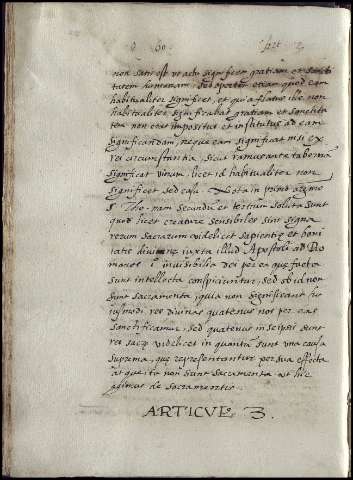 60. Art 3
non satis est ut actu significem gratiam et sancti
tatem humanam, sed oportet etiam quod eam
habitualiter significet, et quia flatus ille non
habitualiter significabat gratiam et sanctita
tem non erat impositus et institutus ad eam
significandam, neque eam significat nisi ex
rei circunstantia, sicut ramus ante taberna
significat vinum. licet id habitualiter non
significet sed casu. Nota in primo
D. Thomam secundum et tertium soluta sunt
quod licet creaturæ sensibiles sint signa
rerum sacrarum videlicet sapientiæ et boni
tatis divinæ iuxta illud Apostoli ad Ro
manos 1º invisibilia dei per ea quæ facta
sunt intellecta conspiciuntur, sed ob id non
sunt sacramenta quia non significant
iusmodi res divinas quatenus nos per eas
sanctificamur, sed quatenus in seipsis sunt
res sacræ videlicet in quantum sunt una causa
suprema, quæ representantur per sua effecta
atque ita non sunt sacramenta ut hic
agimus de sacramentis.
ARTICVL. 3.